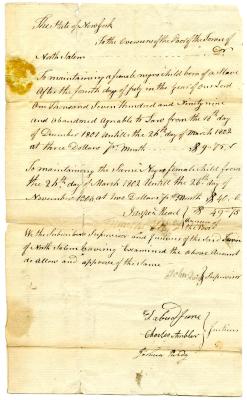 The State of NewYork
To the Overseers of the Poor of the Town of
North Salem
To maintaining a female negro child born of a Slave
After the fourth day of July in the Year of our Lord
One Thousand Seven Hundred and Ninety nine
and Abandoned Agreable to Law from the 10th day
of December 1801 Untill the 26th day of March 1802
at three Dollars pr Month 9-75
To maintaining the Same Negro female Child from
the 26th day of March 1802 Untill the 26th day of
November 1803 at two Dollars pr Month $ 40-0
$ 49-75
We the Subscribers Supervisor and Justices of the Said Town
of North Salem having Examined the above Account
do allow and approve of the Same
Supervisor
Jabus June
Charles Ambler
Justices
Joshua Purdy